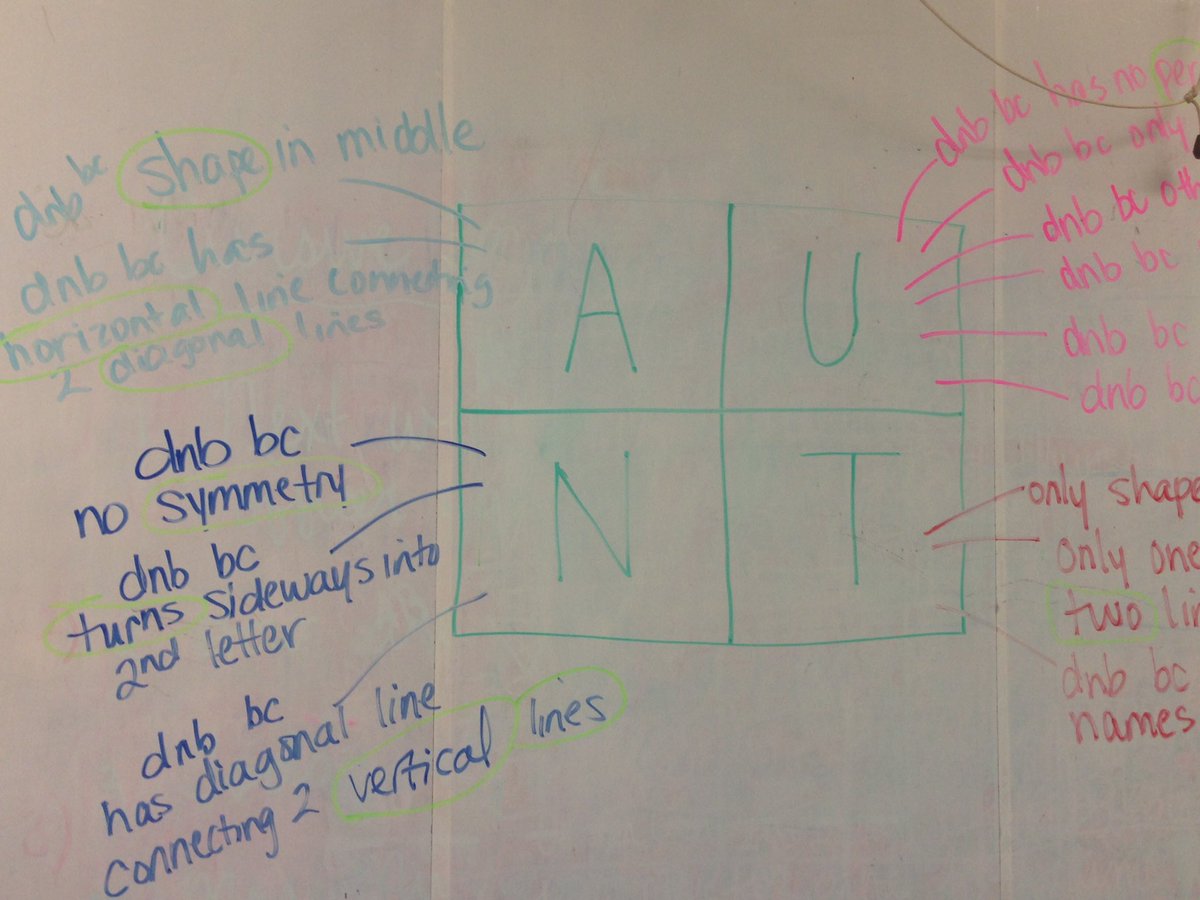 dnb bc shape in middle
dnb bc has
horizontal line connecting
2 diagonal lines
dnb bc
no symmetry
dnb bc
turns sideways into
2nd letter
dnb bc
has diagonal line
connecting 2 vertical lines
A U
N T
dnb bc has no
dnb bc only
dnb bc
dnb bc
dnb bc
dnb bc
only shape
only one
two
dnb bc
names